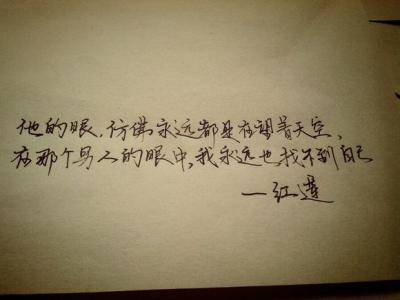 他的眼,仿佛永远都是在望着天空、
在那个男人的眼中,我永远也找不到自己
—红莲